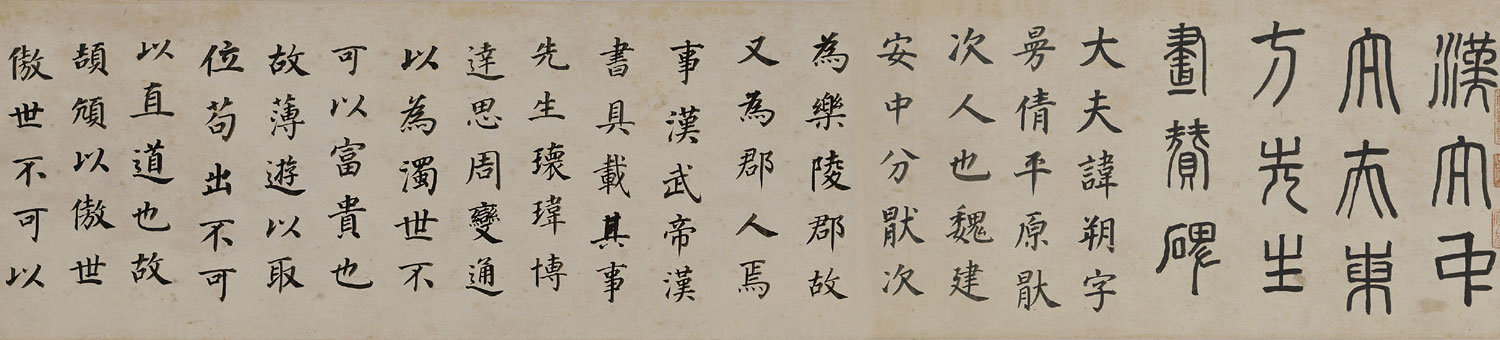 漢太中
大夫東
方先生
畫贊碑
大夫諱朔字
曼倩平原猒
次人也魏建
安中分猒次
為樂陵郡故
又為郡人焉
事漢武帝漢
書具載其事
先生瓌瑋博
達思周變通
以為濁世不
可以富貴也
故薄遊以取
位苟出不可
以直道也故
頡頏以傲世
傲世不可以